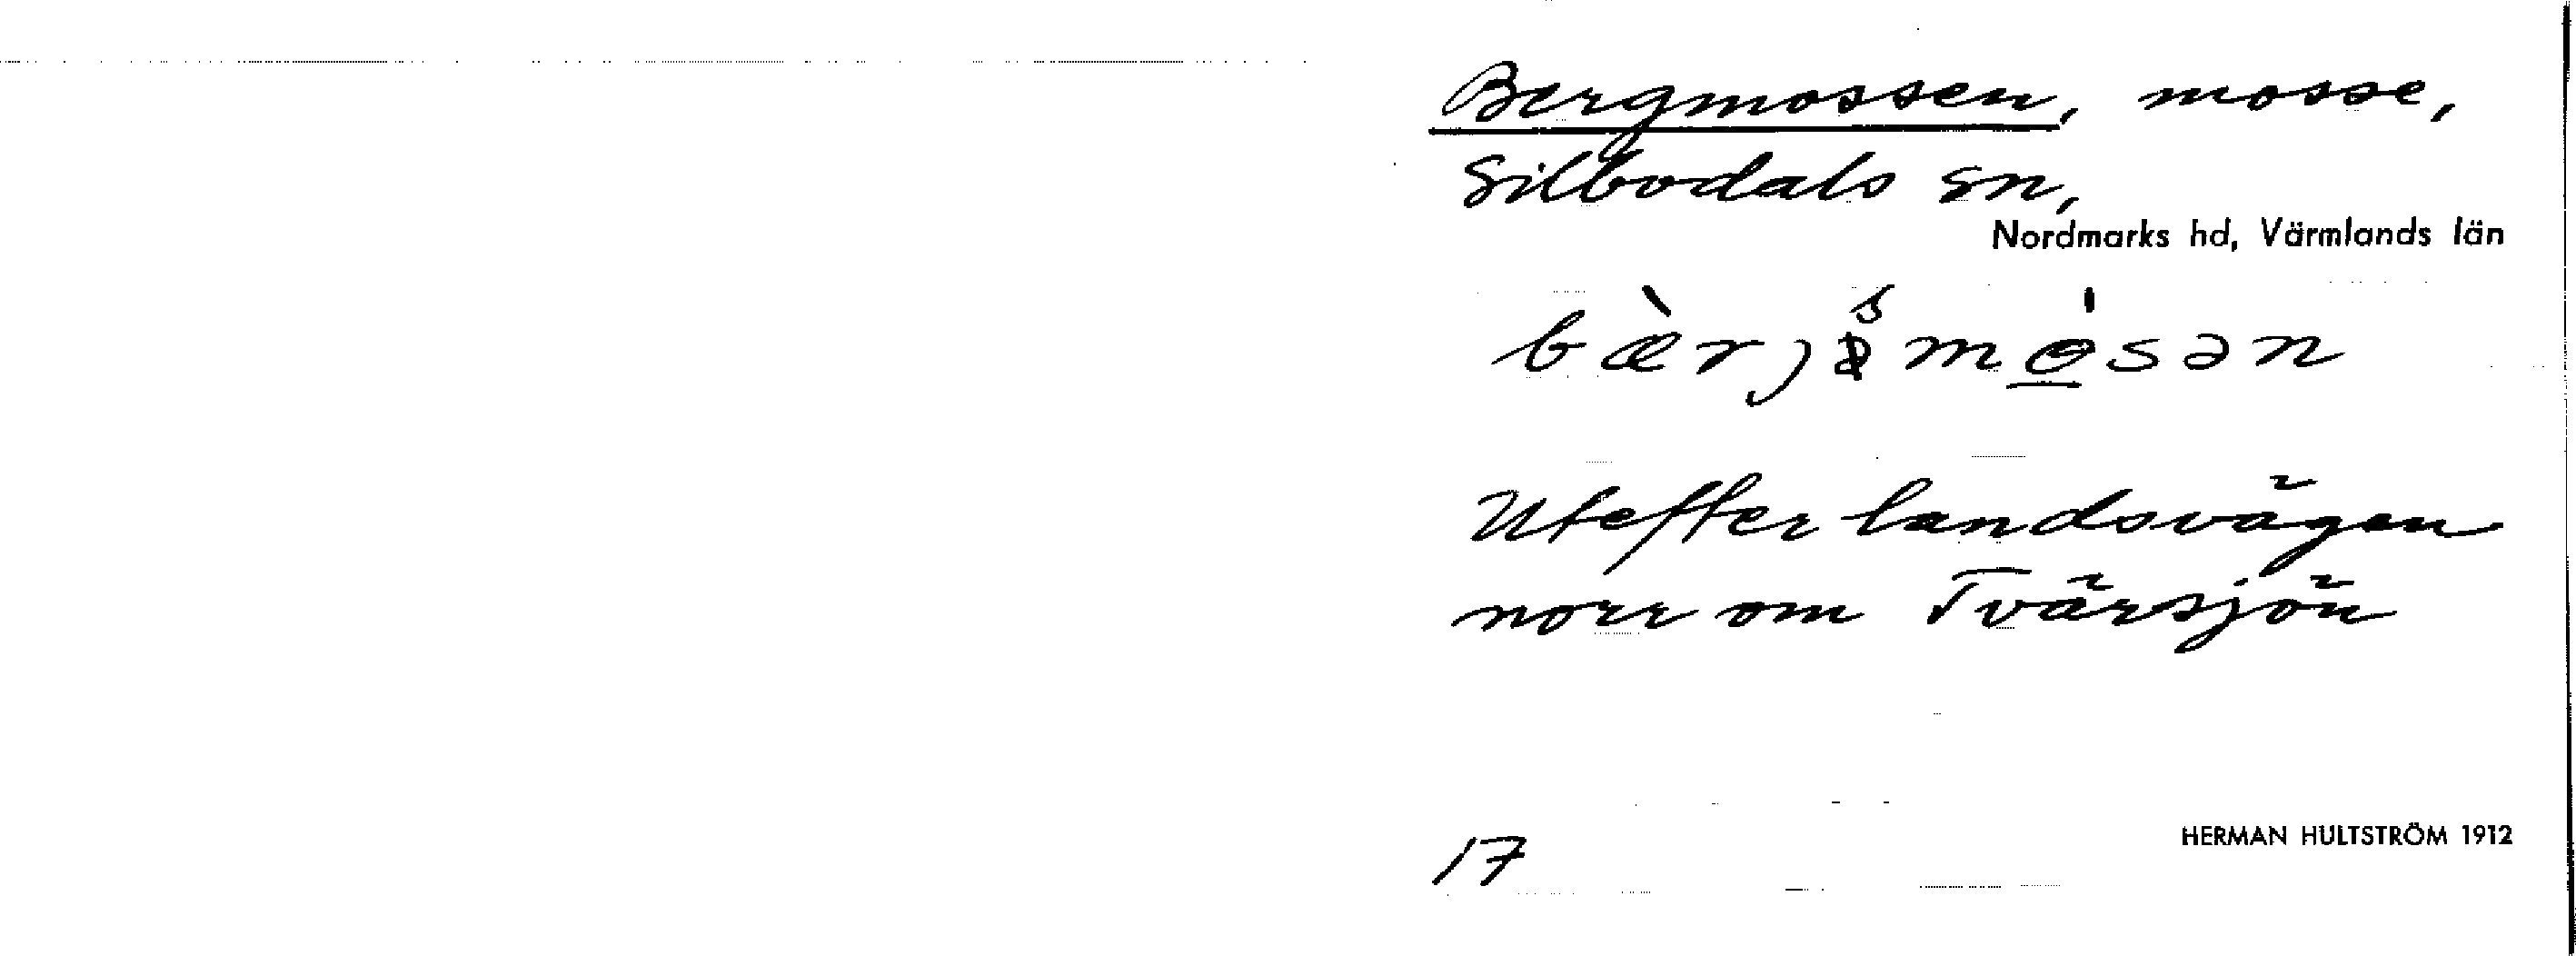 Bergmossen, mosse,
Silbodals sn,
Nordmarks hd, Värmlands län
Utefter landsvägen
norr om Tvärsjön
17
HERMAN HULTSTRÖM 1912